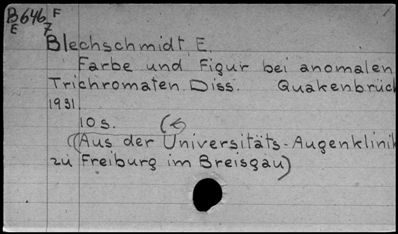 B646 F
E 7
Blechschmidt, E.
Farbe und Figur bei anomalen
Trichromaten. Diss. Quakenbrück
1931.
10 s.
(Aus der Universitäts-Augenklinik
zu Freiburg im Breisgau)